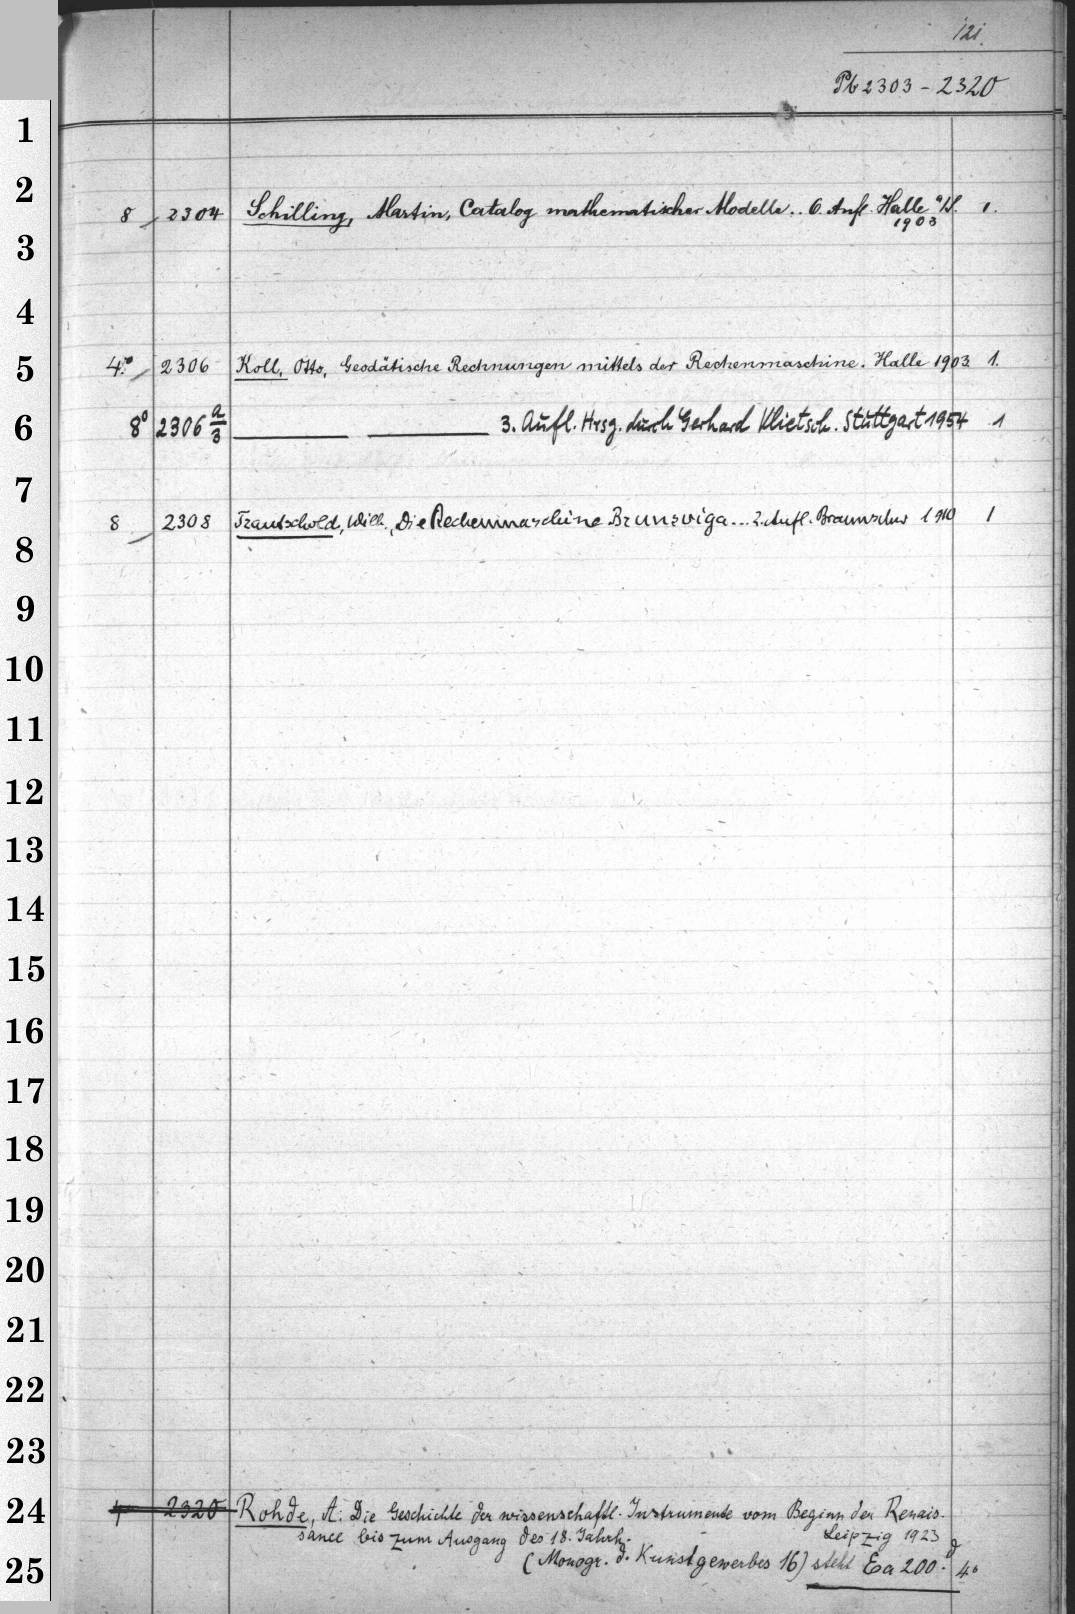 121.
Pb 2303 - 2320
1
2
8 2304 Schilling, Martin, Catalog mathematischer Modelle.. 6. Aufl. Halle a/S. 1.
1903
3
4
5 4º 2306 Koll, Otto, Geodätische Rechnungen mittels der Rechenmaschine. Halle 1903 1.
6 8º 2306 a/3 3. Aufl. Hrsg. durch Gerhard Klietsch. Stuttgart 1954 1
7
8 2308 Trautschold, Wilh., Die Rechenmaschine Brunsviga... 2. Aufl. Braunschw 1910 1
8
9
10
11
12
13
14
15
16
17
18
19
20
21
22
23
24 4º 2320 Rohde, A: Die Geschichte der wissenschaftl. Instrumente vom Beginn der Renais-
sance bis zum Ausgang des 18. Jahrh. Leipzig 1923
25 (Monogr. d. Kunstgewerbes 16) steht Ea 200. 4º